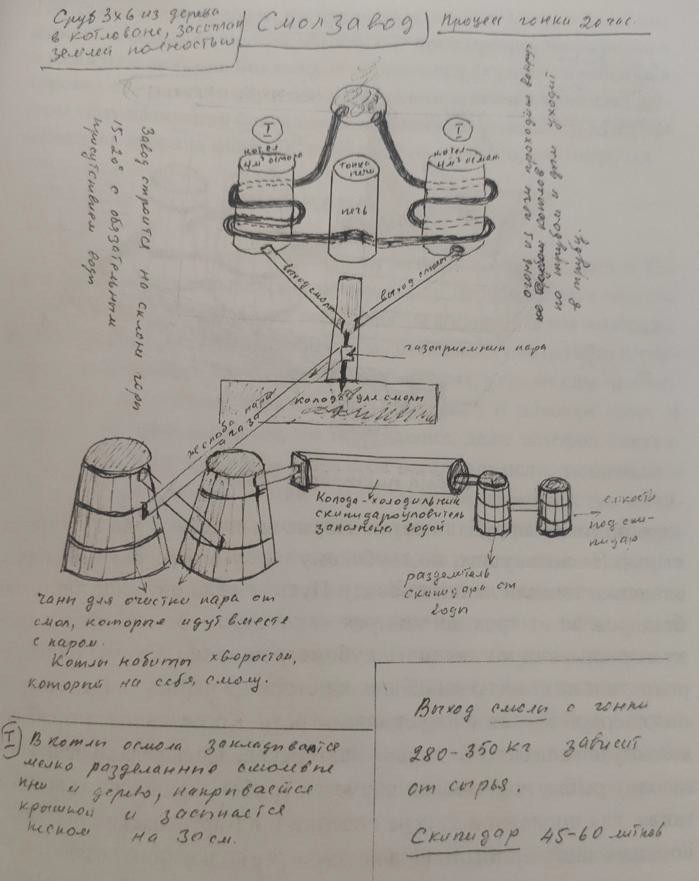 Сруб 3х6 из дерева
в котловане, засыпан
землей полностью
Смолзавод
Процесс гонки 20 час.
Завод строится на склоне горы
15-20° с обязательным
присутствием воды
дым от печи проходит
котлов
по и дым уходит
в трубу.
I
I
котел
4м³ осмола
котел
4м³ осмол.
топка
печи
печь
выход смолы
выход смолы
газоприемник пара
колода для смолы
желоба пара
и газа
Колода-холодильник
скипидароуловитель
заполнена водой
емкости
под ски-
пидар
разделитель
скипидара от
воды
чаны для очистки пара от
смол, которые идут вместе
с паром.
Котлы набиты хворостом,
который на себя, смолу.
I В котлы осмола закладывается
мелко разделанные смолевые
пни и дерево, накрывается
крышкой и засыпается
песком на 30 см.
Выход смолы с гонки
280-350 кг зависит
от сырья.
Скипидар 45-60 литров